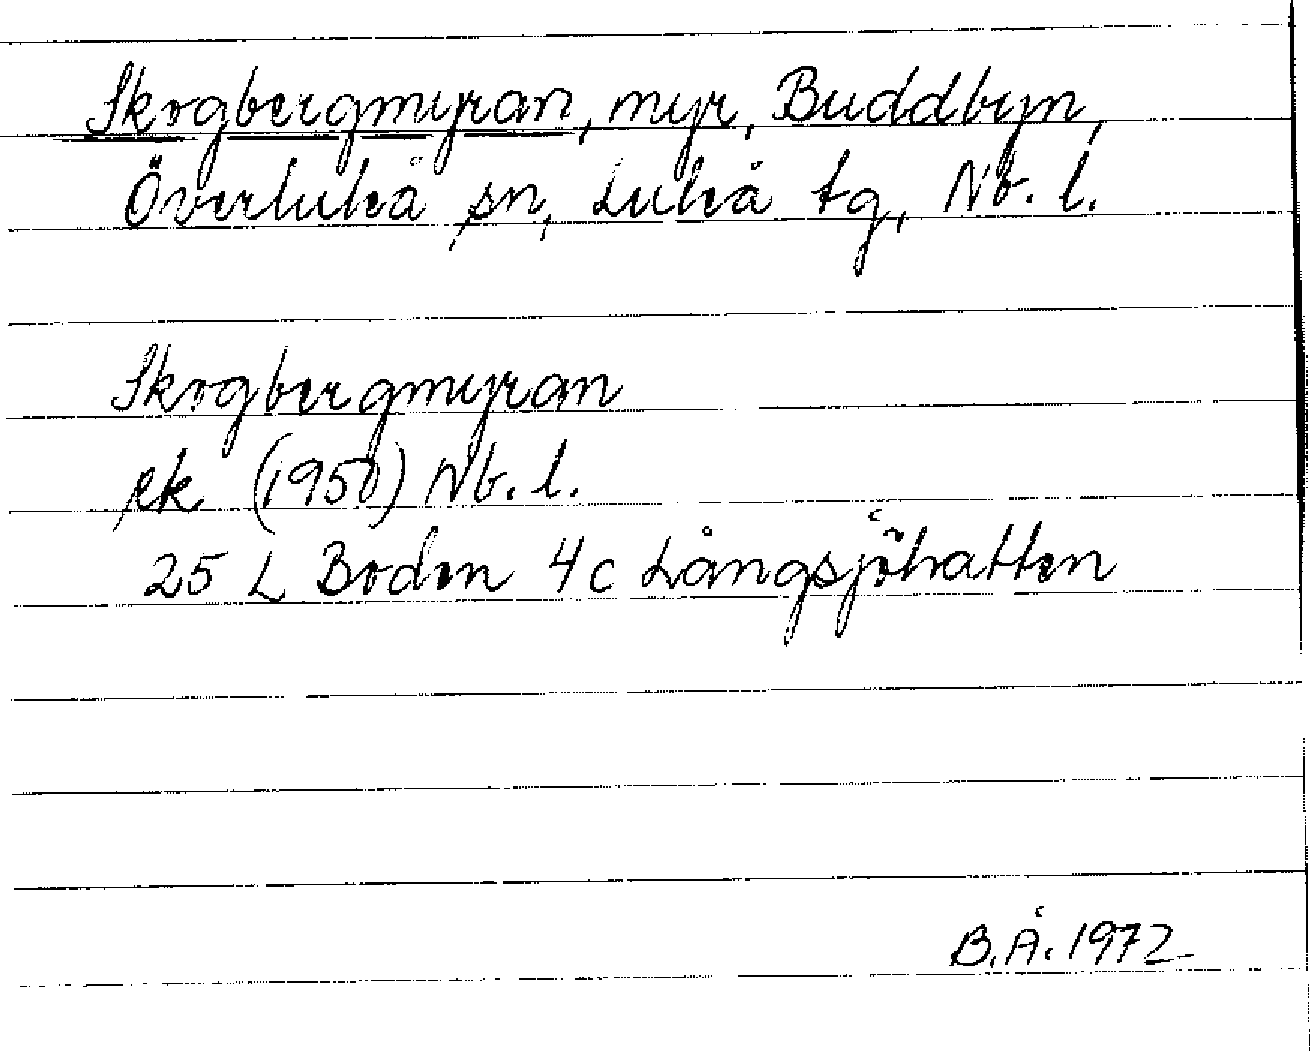 Skogbergmyran, myr, Buddbyn,
Överluleå sn, Luleå tg, Nb. l.
Skogbergmyran
ek (1950) Nb. l.
25 L Boden 4c Långsjöhatten
B.Å. 1972